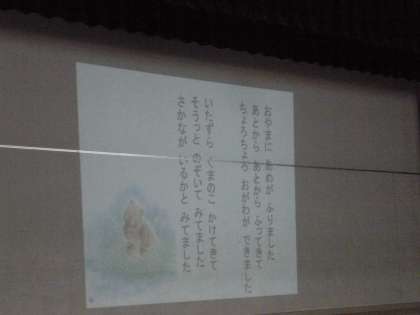 おやまに あめが ふりました
あとから あとから ふってきて
ちょろちょろ おがわが できました
いたずら くまのこ かけてきて
そうっと のぞいて みてました
さかなが いるかと みてました